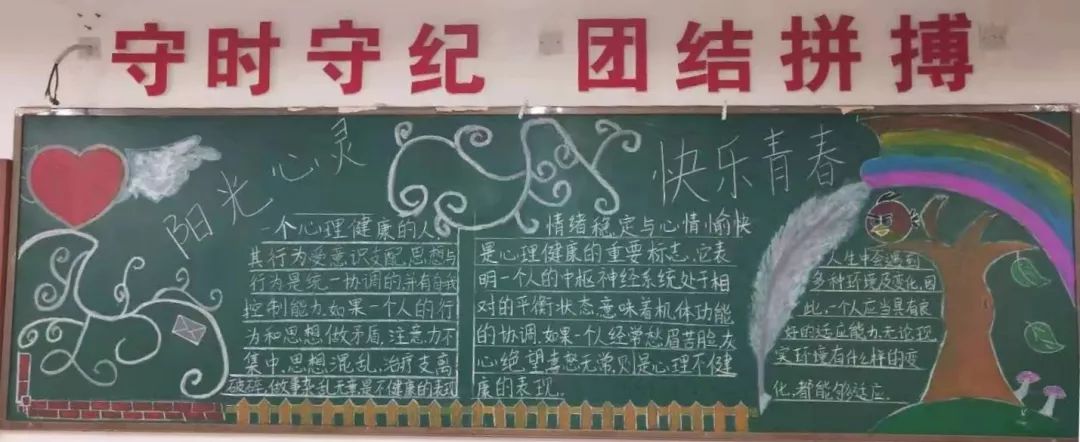 守时守纪 团结拼搏
阳光心灵
快乐青春
一个心理健康的人
其行为受意识支配,思想与
行为是统一协调的,并有自我
控制能力.如果一个人的行
为和思想做矛盾,注意力不
集中,思想混乱,治疗支离
破碎,做事杂乱无章,是不健康的表现
情绪稳定与心情愉快
是心理健康的重要标志,它表
明一个人的中枢神经系统处于相
对的平衡状态,意味着机体功能
的协调.如果一个人经常愁眉苦脸,灰
心绝望,喜怒无常,则是心理不健
康的表现.
人生中会遇到
多种环境及变化,因
此,一个人应当具有良
好的适应能力,无论现
实环境有什么样的变
化,都能够适应.